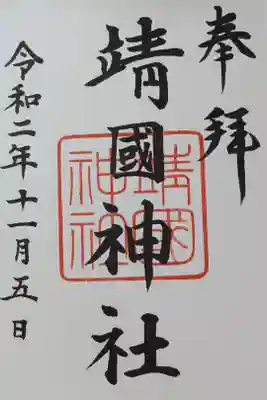 奉拝
靖國神社
靖國神社
令和二年十一月五日